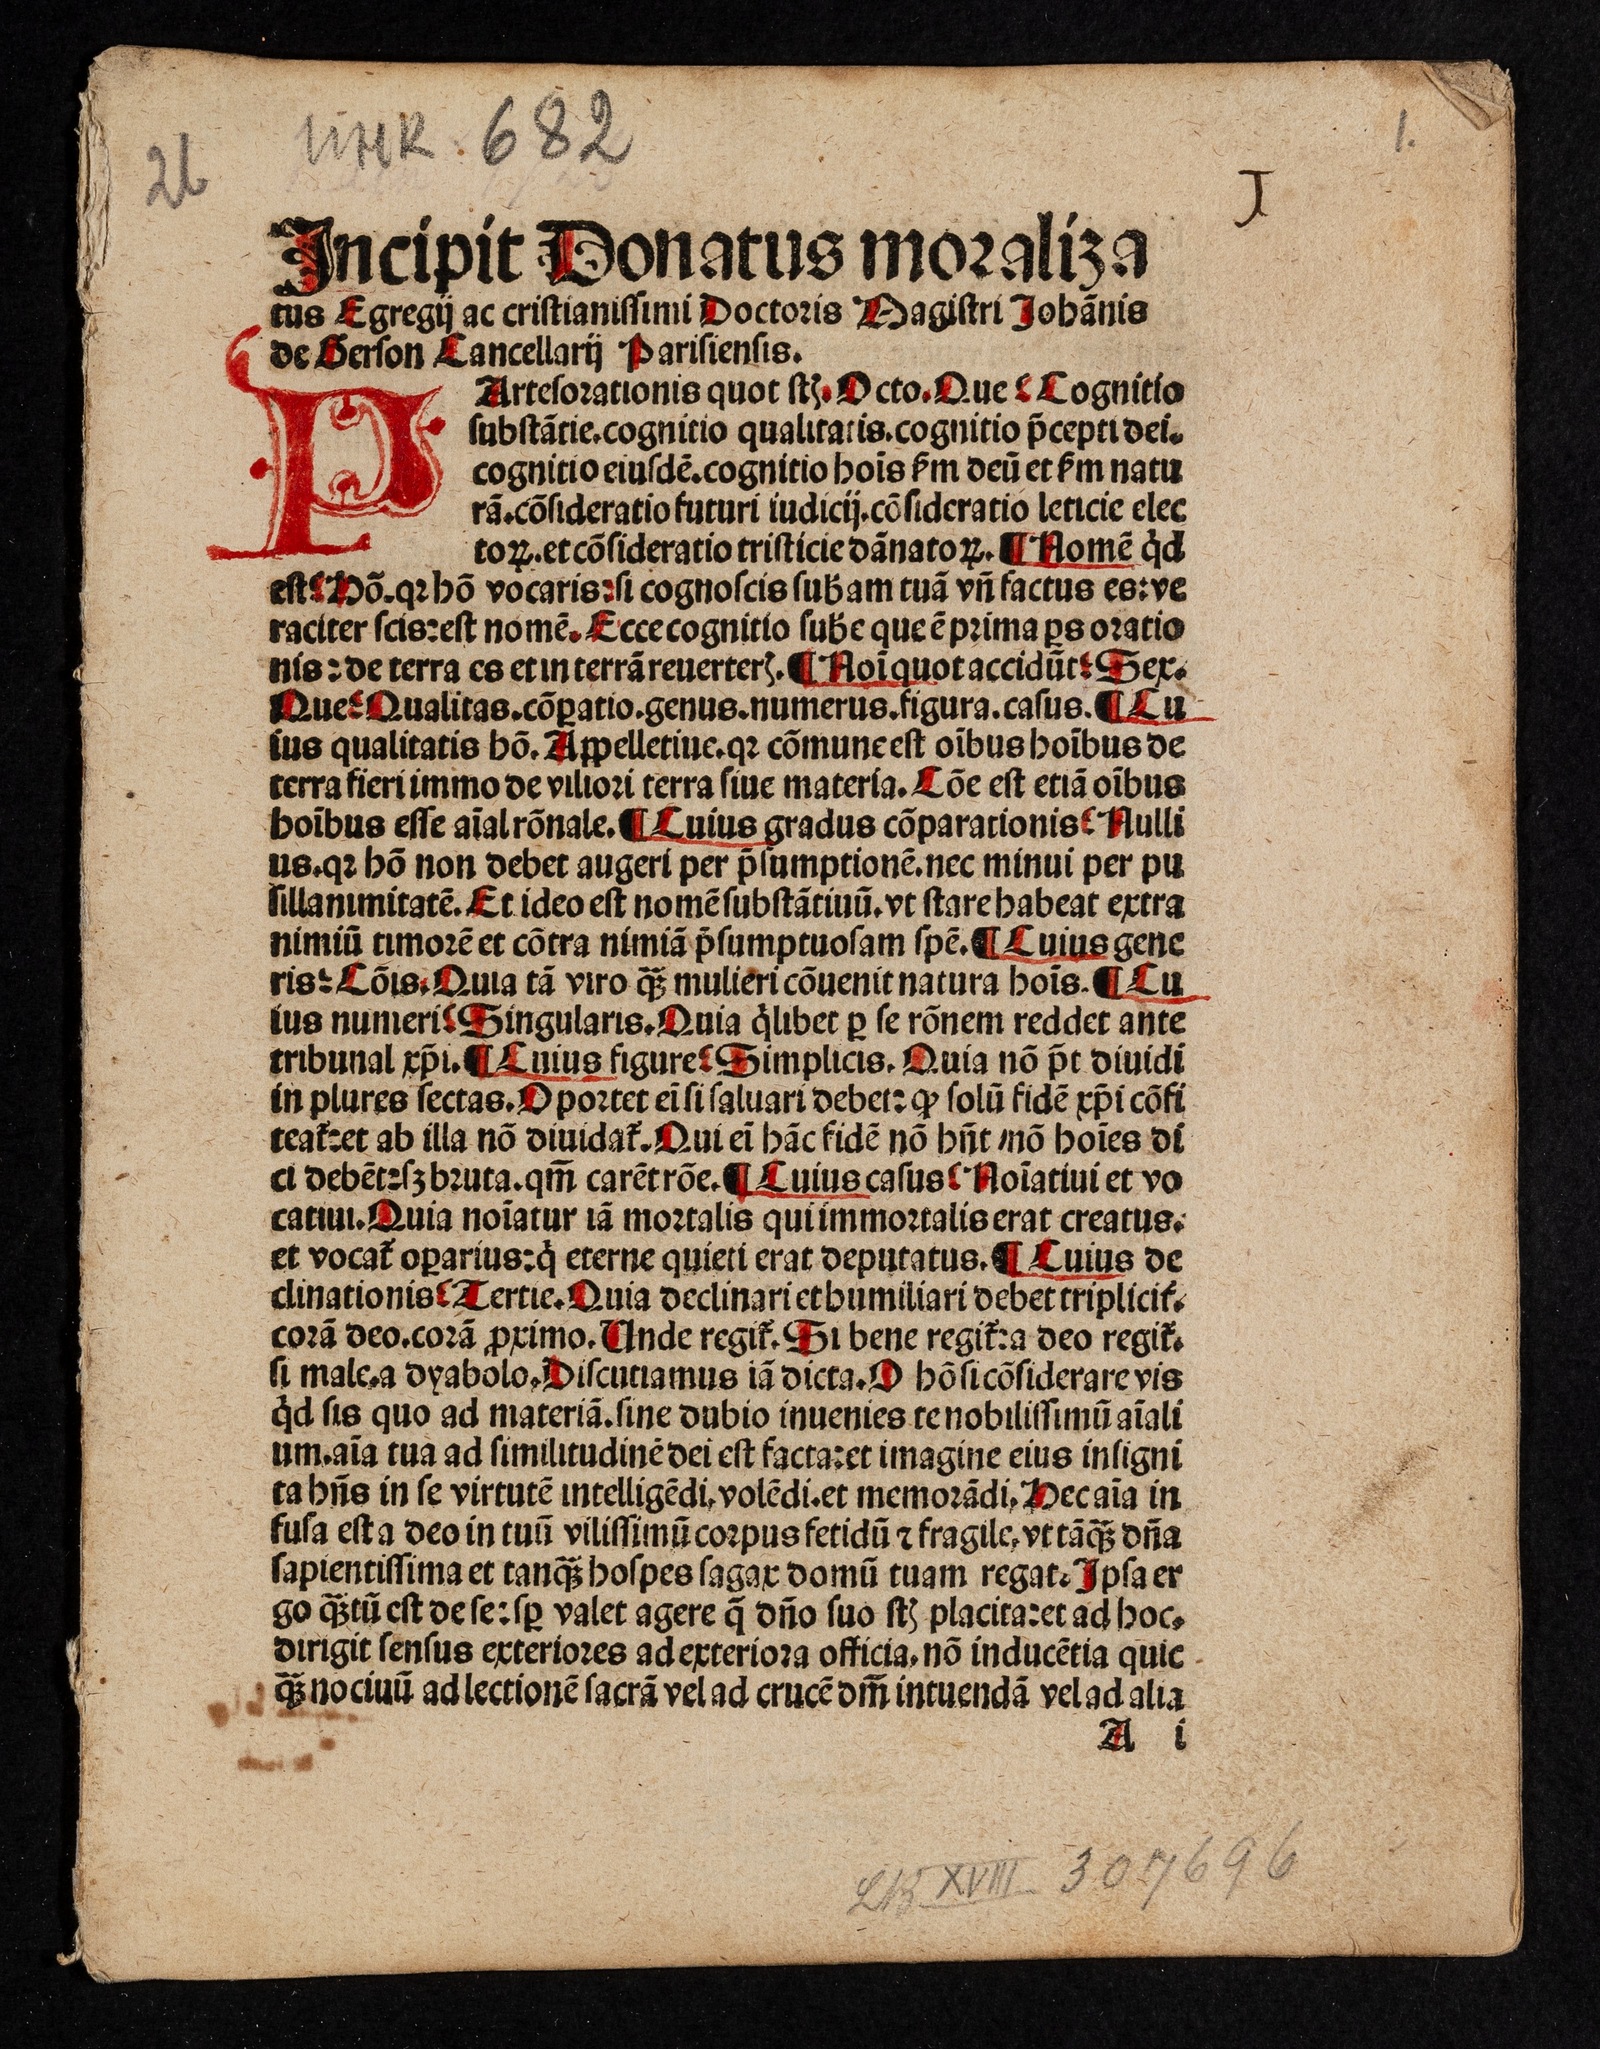 26
682
1.
J
Incipit Donatus moraliza
tus Egregij ac cristianissimi Doctoris Magistri Johãnis
de Gerson Cancellarij Parisiensis.
PArtesorationis quot st̃. Octo. Que? Cognitio
substãtie.cognitio qualitatis.cognitio p̃cepti dei.
cognitio eiusdẽ.cognitio hoĩs ẜm deũ et ẜm natu
rã.cõsideratio futuri iudicij.cõsideratio leticie elec
toꝝ.et cõsideratio tristicie dãnatoꝝ. ¶ Nomẽ qͥd
est? Hõ.qꝛ hõ vocaris:si cognoscis sub̃am tuã vñ factus es:ve
raciter scis:est nomẽ. Ecce cognitio sub̃e que ẽ prima ꝑs oratio
nis: de terra es et in terrã reuerterꝭ. ¶ Noĩ quot accidũt? Sex.
Que? Qualitas.cõꝑatio.genus.numerus.figura.casus. ¶ Cu
ius qualitatis hõ. Appelletiue.qꝛ cõmune est oĩbus hoĩbus de
terra fieri immo de viliori terra siue materia. Cõe est etiã oĩbus
hoĩbus esse aĩal rõnale. ¶ Cuius gradus cõparationis? Nulli
us.qꝛ hõ non debet augeri per p̃sumptionẽ.nec minui per pu
sillanimitatẽ. Et ideo est nomẽ substãtiuũ.vt stare habeat extra
nimiũ timorẽ et cõtra nimiã p̃sumptuosam spẽ. ¶ Cuius gene
ris? Cõis. Quia tã viro q̃ꝫ mulieri cõuenit natura hoĩs. ¶ Cu
ius numeri? Singularis. Quia qͥlibet ꝑ se rõnem reddet ante
tribunal xp̃i. ¶ Cuius figure? Simplicis. Quia nõ p̃t diuidi
in plures sectas. Oportet eĩ si saluari debet: ꝙ solũ fidẽ xp̃i cõfi
teat̃:et ab illa nõ diuidat̃. Qui eĩ hãc fidẽ nõ hñt nõ hoĩes di
ci debẽt:sꝫ bruta.qm̃ carẽt rõe. ¶ Cuius casus? Noĩatiui et vo
catiui. Quia noĩatur iã mortalis qui immortalis erat creatus.
et vocat̃ oꝑarius:qͥ eterne quieti erat deputatus. ¶ Cuius de
clinationis? Tertie. Quia declinari et humiliari debet triplicit̃.
corã deo.corã ꝓximo. Unde regit̃. Si bene regit̃:a deo regit̃.
si male.a dyabolo. Discutiamus iã dicta. O hõ si cõsiderare vis
qͥd sis quo ad materiã.sine dubio inuenies te nobilissimũ aĩali
um.aĩa tua ad similitudinẽ dei est facta:et imagine eius insigni
ta hñs in se virtutẽ intelligẽdi.volẽdi.et memorãdi. Hec aĩa in
fusa est a deo in tuũ vilissimũ corpus fetidũ ⁊ fragile.vt tãq̃ꝫ dña
sapientissima et tanq̃ꝫ hospes sagax domũ tuam regat. Ipsa er
go q̃ꝫtũ est de se:sꝑ valet agere q̃ dño suo st̃ placita:et ad hoc.
dirigit sensus exteriores ad exteriora officia.nõ inducẽtia quic
q̃ꝫ nociuũ ad lectionẽ sacrã vel ad crucẽ dm̃ intuendã vel ad alia
A i
XVIII 307696